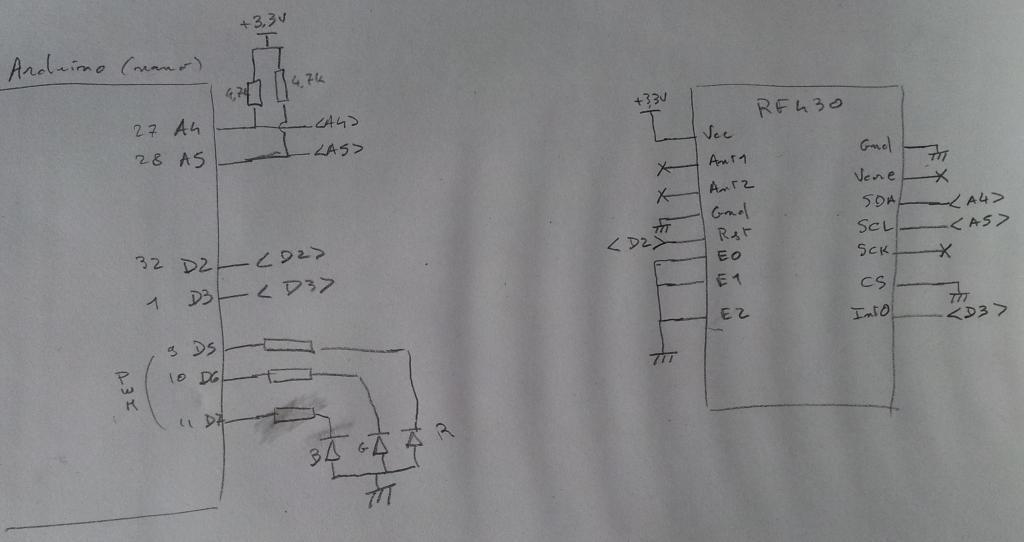 +3,3V
Arduino (nano)
4,7k
4,7k
27 A4
<A4>
28 A5
<A5>
32 D2
<D2>
1 D3
<D3>
PWM
9 D5
10 D6
11 D7
B
G
R
RF430
+3,3V
Vcc
Ant1
Ant2
Gnd
<D2>
Rst
E0
E1
E2
Gnd
Vcore
SDA
<A4>
SCL
<A5>
SCK
CS
Int0
<D3>